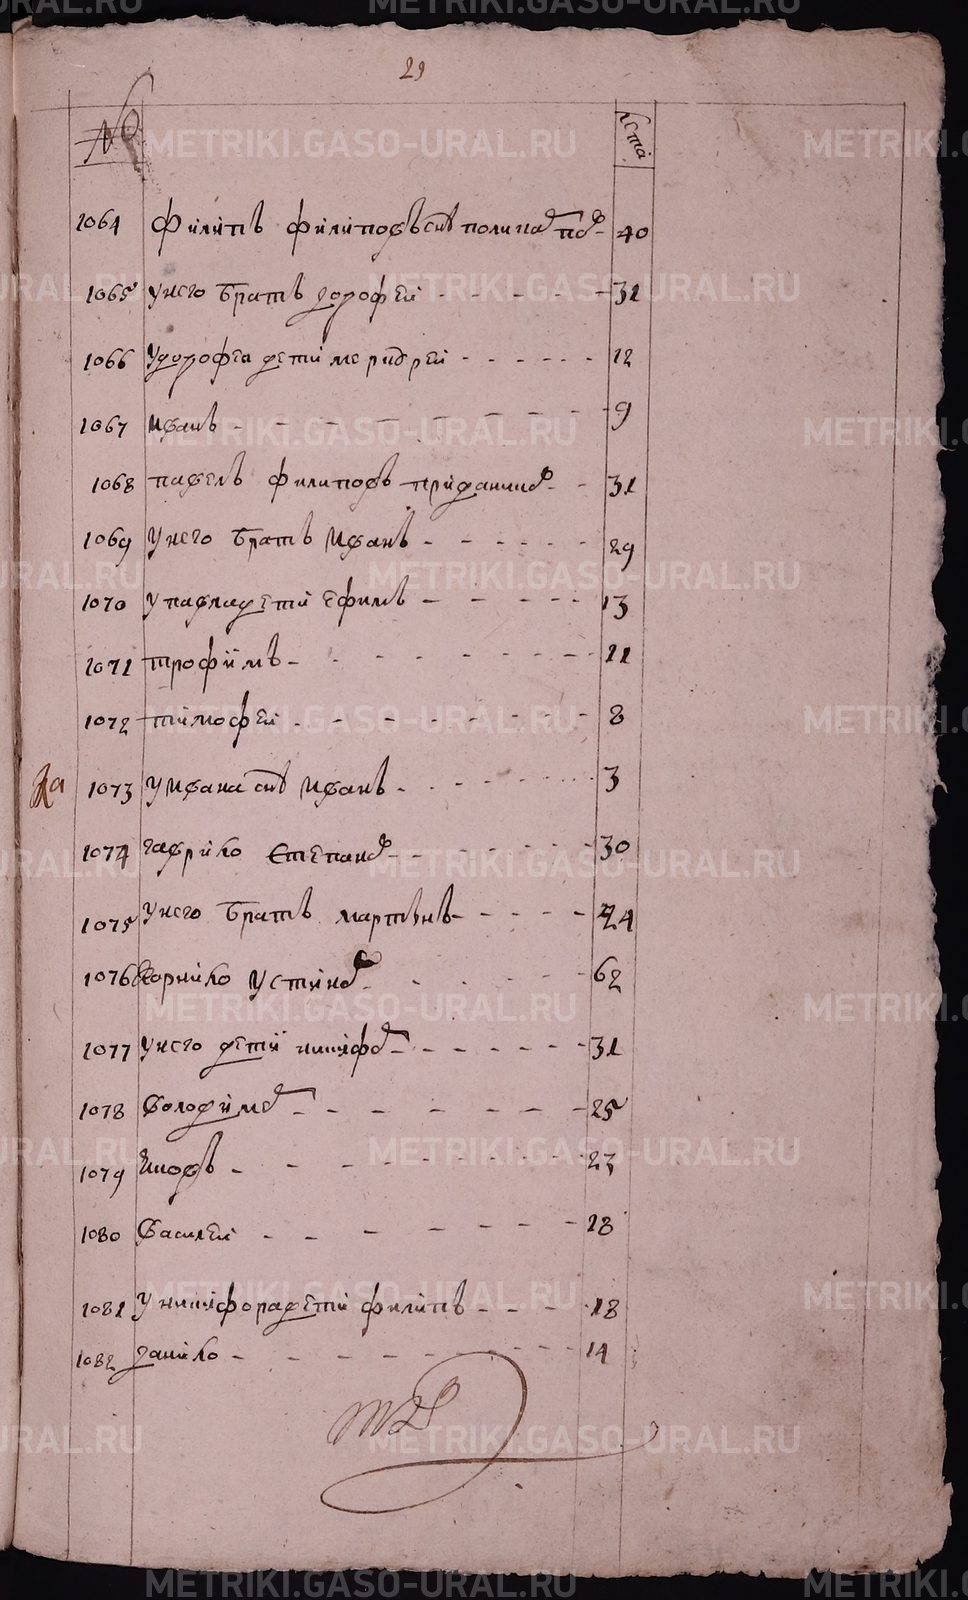 29
№ лета
1064 Филипъ Филиповъ снъ 40
1065 У него братъ Дорофеи 31
1066 У Дорофеа дети 12
1067 Иванъ 9
1068 Павелъ Филиповъ 31
1069 У него братъ Иванъ 29
1070 У Павла дети Ефимъ 13
1071 Трофимъ 11
1072 Тимофеи 8
1073 У Ивана снъ Иванъ 3
1074 Гаврило Степанов 30
1075 У него братъ Мартынъ 24
1076 Корнило Устинов 62
1077 У него дети Никифор 31
1078 Володимер 25
1079 23
1080 Василеи 18
1081 У Никифора дети Филипъ 18
1082 Данило 14
METRIKI.GASO-URAL.RU